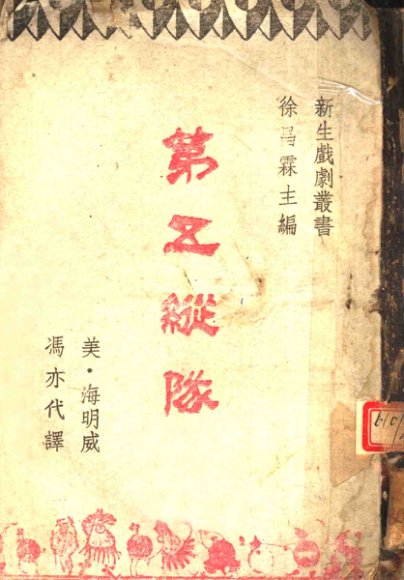 新生戲劇叢書
徐昌霖主編
第五縱隊
美·海明威
馮亦代譯
610